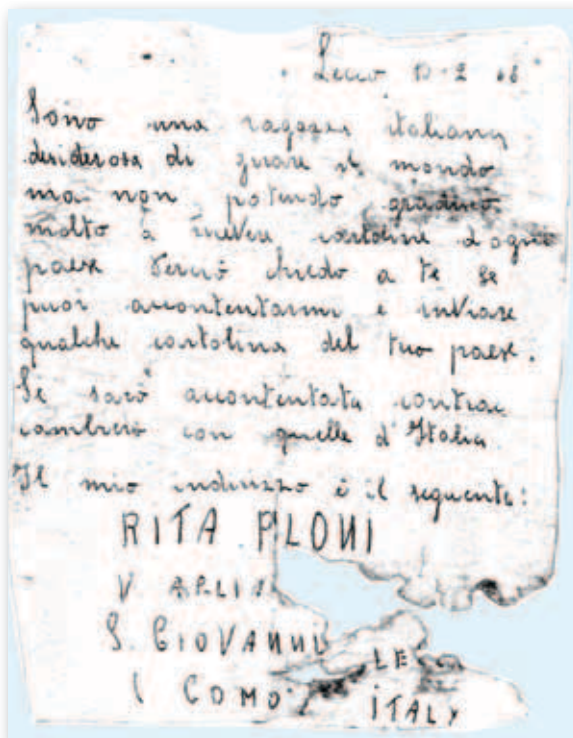 Lecco 10-2 68
Sono una ragazza italiana
desiderosa di girare il mondo
ma non potendo gradirei
molto a ricevere cartoline d'ogni
paese Perciò chiedo a te se
puoi accontentarmi e inviare
qualche cartolina del tuo paese.
Se sarò accontentata contrac
cambierò con quelle d'Italia.
Il mio indirizzo è il seguente:
RITA PLONI
V.
S. GIOVANNI LE
( COMO ITALY